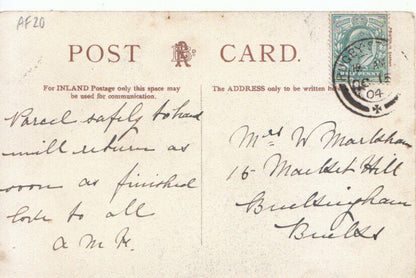 AF20
POST CARD.
For INLAND Postage only this space may
be used for communication.
The ADDRESS only to be written
HALF PENNY
04
Parcel safely to hand
will return as
soon as finished
love to all
Mrs W Markham
16 Market Hill
Buckingham
Bucks